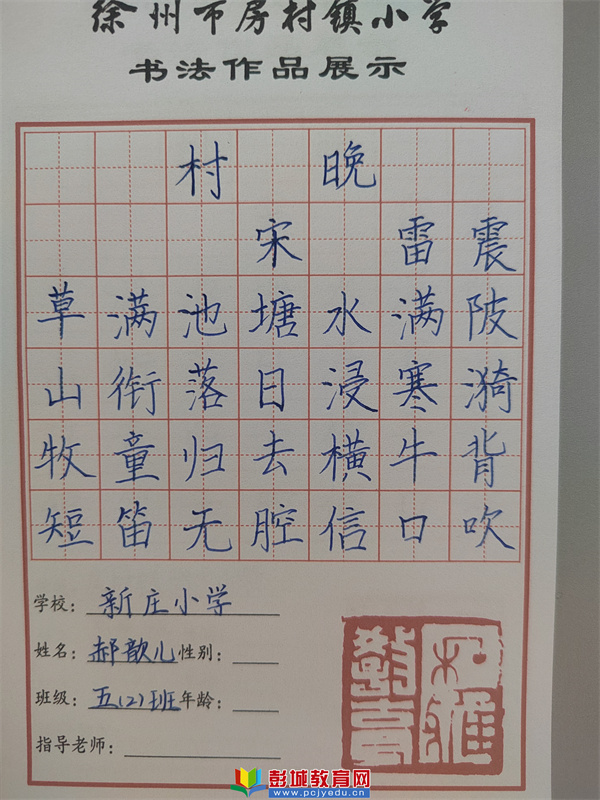 徐州市房村镇小学
书法作品展示
村 晚
宋 雷震
草满池塘水满陂
山衔落日浸寒漪
牧童归去横牛背
短笛无腔信口吹
学校：新庄小学
姓名：郝歆儿 性别：
班级：五(2)班 年龄：
指导老师：
彭城教育网
www.pcjyedu.cn